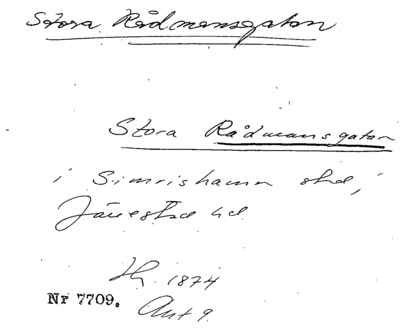 Stora Rådmansgatan
Stora Rådmansgatan
i Simrishamn stad,
Järrestad hd
1874
Nr 7709.
Ant 9